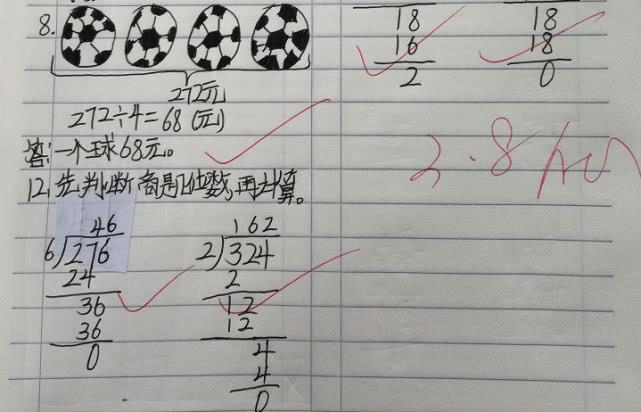 8.
272元
272÷4=68(元)
答:一个球68元。
12.先判断商是几位数,再计算。
46
6)276
24
36
36
0
162
2)324
2
12
12
4
4
0
18
16
2
18
18
0